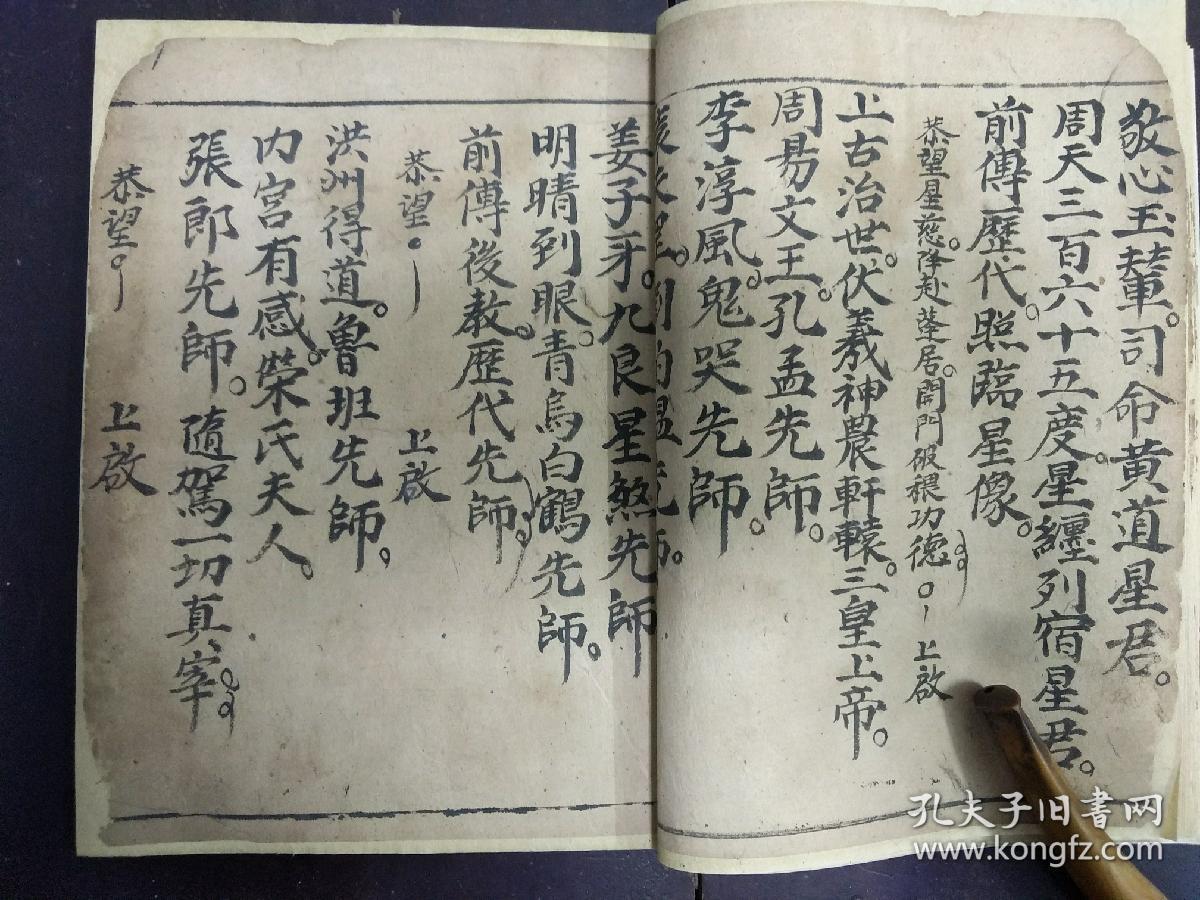 敬心玉輦。司命黄道星君。
周天三百六十五度。星纏列宿星君。
前傳歷代。照臨星像。
恭望星慈。降赴茔居。開門破穢功德。上啟
上古治世。伏羲神農軒轅。三皇上帝。
周易文王。孔孟先師。
李淳風。鬼哭先師。
先師。
姜子牙。九良星煞先師
明晴到眼。青烏白鶴先師。
前傳後教。歷代先師。
恭望。上啟
洪州得道。魯班先師。
内宮有感。榮氏夫人。
張郎先師。隨駕一切真宰。
恭望。上啟
孔夫子旧書网
www.kongfz.com